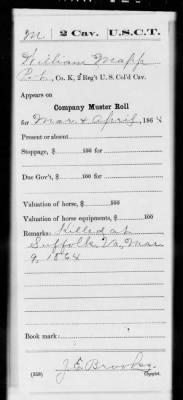 M | 2 Cav. | U.S.C.T.
William Mapp
Pvt., Co. K, 2 Reg't U. S. Col'd Cav.
Appears on
Company Muster Roll
for Mar & April, 1864
Present or absent
Stoppage, $ 100 for
Due Gov't, $ 100 for
Valuation of horse, $ 100
Valuation of horse equipments, $ 100
Remarks: Killed at
Suffolk Va, Mar
9, 1864
Book mark:
J E Brooks
(358) Copyist.